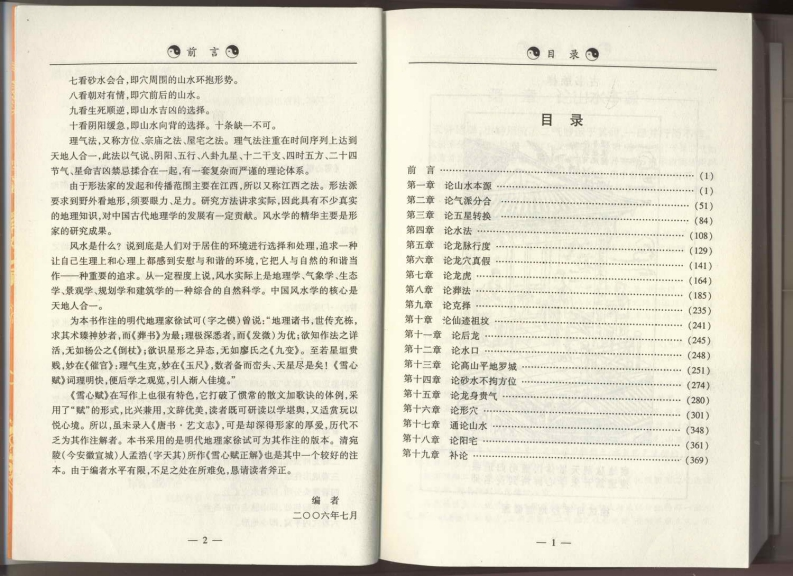 前言
七看砂水会合,即穴周围的山水环抱形势。
八看朝对有情,即穴前后的山水。
九看生死顺逆,即山水吉凶的选择。
十看阴阳缓急,即山水向背的选择。十条缺一不可。
理气法,又称方位、宗庙之法、屋宅之法。理气法注重在时间序列上达到
天地人合一,此法以气说、阴阳、五行、八卦九星、十二干支、四时五方、二十四
节气、星命吉凶禁忌揉合在一起,有一套复杂而严谨的理论体系。
由于形法家的发起和传播范围主要在江西,所以又称江西之法。形法派
要求到野外看地形,须要眼力、足力。研究方法讲求实际,因此具有不少真实
的地理知识,对中国古代地理学的发展有一定贡献。风水学的精华主要是形
家的研究成果。
风水是什么?说到底是人们对于居住的环境进行选择和处理,追求一种
让自己生理上和心理上都感到安慰与和谐的环境,它把人与自然的和谐当
作一种重要的追求。从一定程度上说,风水实际上是地理学、气象学、生态
学、景观学、规划学和建筑学的一种综合的自然科学。中国风水学的核心是
天地人合一。
为本书作注的明代地理家徐试可(字之镆)曾说:“地理诸书,世传充栋,
求其术臻神妙者,而《葬书》为最;理极深悉者,而《发微》为优;欲知作法之详
活,无如杨公之《倒杖》;欲识星形之异态,无如廖氏之《九变》。至若星垣贵
贱,妙在《催官》;理气生克,妙在《玉尺》,数者备而峦头、天星尽是矣!《雪心
赋》词理明快,便后学之观览,引人渐入佳境。”
《雪心赋》在写作上也很有特色,它打破了惯常的散文如歌诀的体例,采
用了“赋”的形式,比兴兼用,文辞优美,读者既可研读以学堪舆,又适赏玩以
悦心境。所以,虽未录入《唐书·艺文志》,可是却深得形家的厚爱,历代不
乏为其作注解者。本书采用的是明代地理家徐试可为其作注的版本。清宛
陵(今安徽宣城)人孟浩(字天其)所作《雪心赋正解》也是其中一个较好的注
本。由于编者水平有限,不足之处在所难免,恳请读者斧正。
编者
二〇〇六年七月
— 2 —
目录
目录
前言 (1)
第一章 论山水本源 (1)
第二章 论气派分合 (51)
第三章 论五星转换 (84)
第四章 论水法 (108)
第五章 论龙脉行度 (129)
第六章 论龙穴真假 (141)
第七章 论龙虎 (164)
第八章 论葬法 (185)
第九章 论克择 (235)
第十章 论仙迹祖坟 (241)
第十一章 论后龙 (245)
第十二章 论水口 (248)
第十三章 论高山平地罗城 (251)
第十四章 论砂水不拘方位 (274)
第十五章 论龙身贵气 (280)
第十六章 论形穴 (301)
第十七章 通论山水 (348)
第十八章 论阳宅 (361)
第十九章 补论 (369)
— 1 —